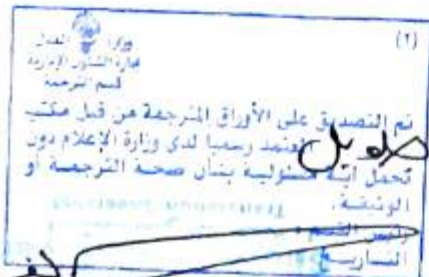 (٢)
وزارة العدل
إدارة الشئون الإدارية
قسم الترجمة
تم التصديق على الأوراق المترجمة من قبل مكتب
معتمد رسميا لدى وزارة الإعلام دون
تحمل أية مسئولية بشأن صحة الترجمة أو
الوثيقة.
رئيس القسم :
التاريخ